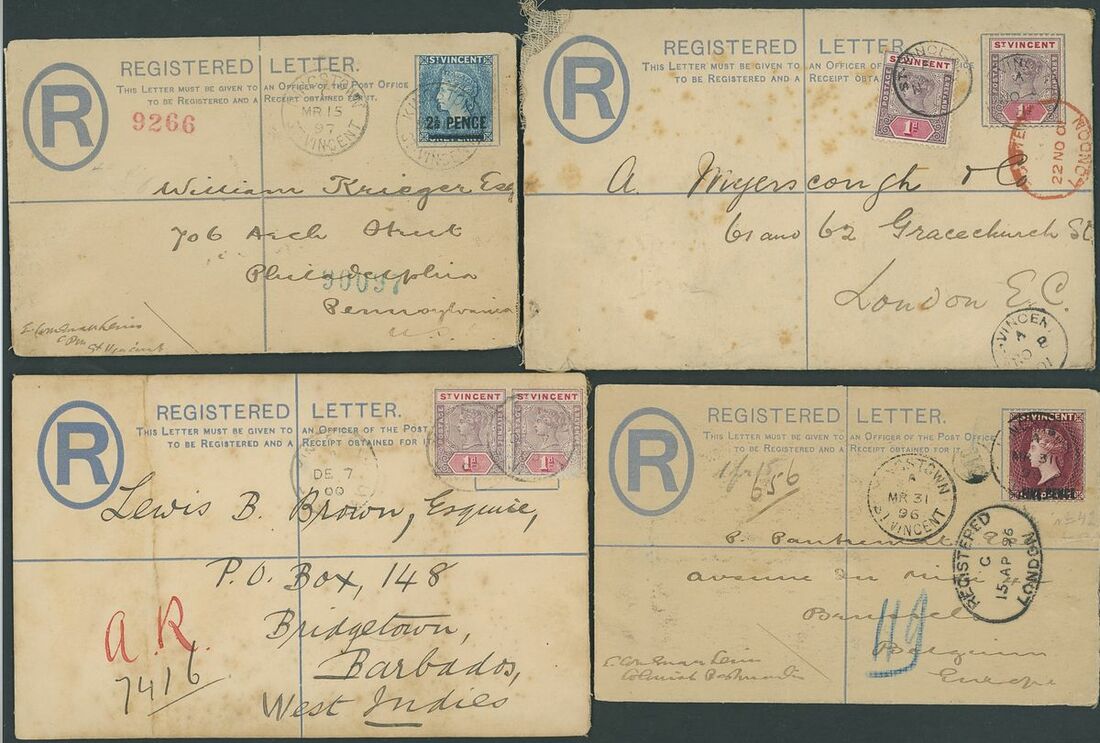 R
REGISTERED LETTER.
THIS LETTER MUST BE GIVEN TO AN OFFICER OF THE POST OFFICE
TO BE REGISTERED AND A RECEIPT OBTAINED FOR IT.
9266
KINGSTOWN
MR 15
97
ST VINCENT
ST VINCENT
2½ PENCE
William Krieger Esq
706 Arch Street
Philadelphia
90097
Pennsylvania
U.S.
St Vincent
R
REGISTERED LETTER.
THIS LETTER MUST BE GIVEN TO AN OFFICER OF THE POST OFFICE
TO BE REGISTERED AND A RECEIPT OBTAINED FOR IT.
ST VINCENT
POSTAGE REVENUE
1d
ST VINCENT
POSTAGE REVENUE
1d
LONDON
22 NO 0
A. Myerscough & Co
61 and 62 Gracechurch St
London E.C.
VINCEN
A
01
R
REGISTERED LETTER.
THIS LETTER MUST BE GIVEN TO AN OFFICER OF THE POST OFFICE
TO BE REGISTERED AND A RECEIPT OBTAINED FOR IT.
ST VINCENT
1d
ST VINCENT
1d
DE 7
00
Lewis B. Brown, Esquire,
P.O. Box, 148
Bridgetown,
Barbados,
West Indies
A.R.
7416
R
REGISTERED LETTER.
THIS LETTER MUST BE GIVEN TO AN OFFICER OF THE POST OFFICE
TO BE REGISTERED AND A RECEIPT OBTAINED FOR IT.
ST VINCENT
PENCE
MR 31
656
KINGSTOWN
A
MR 31
96
ST VINCENT
REGISTERED
C
15 AP 96
LONDON
P.
avenue
119
Belgium
Europe
Colonial Postmaster